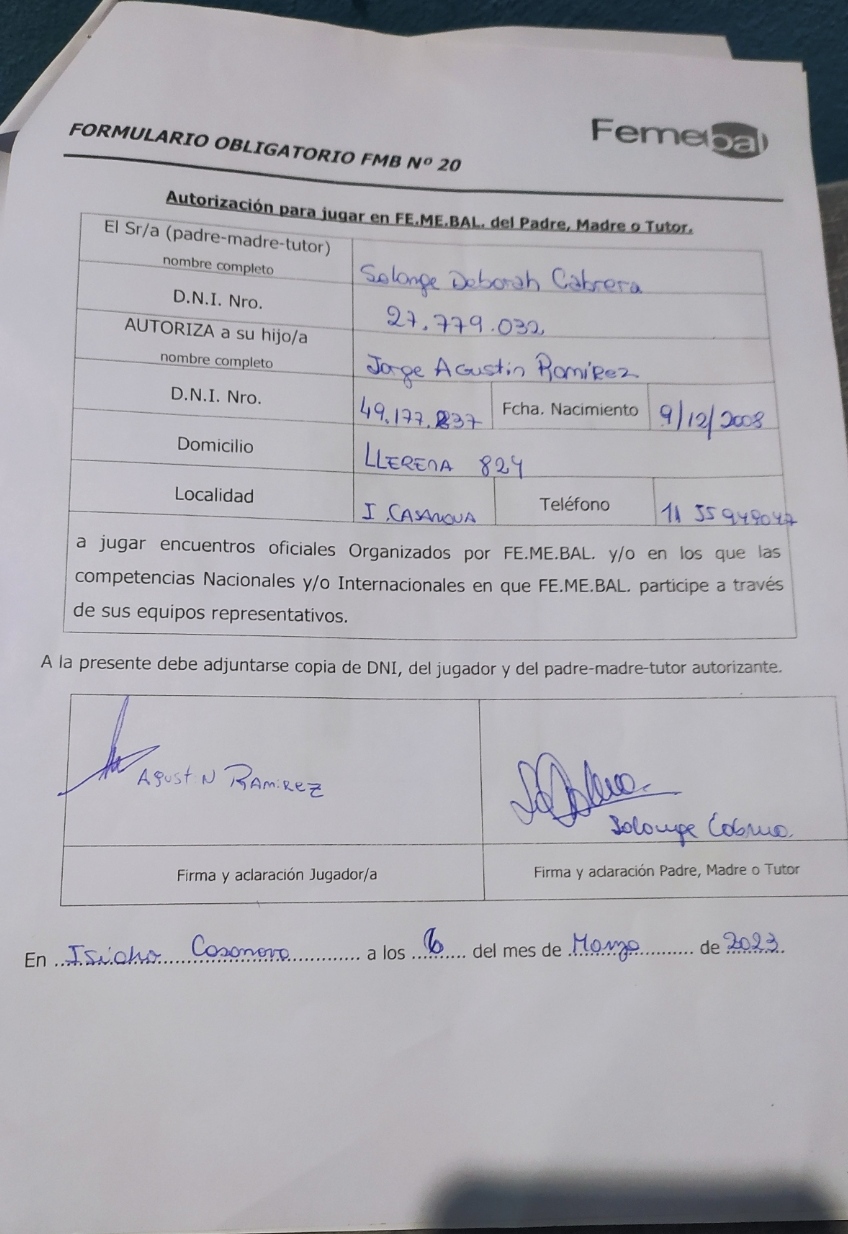 FORMULARIO OBLIGATORIO FMB Nº 20
Femebal
Autorización para jugar en FE.ME.BAL. del Padre, Madre o Tutor.
El Sr/a (padre-madre-tutor)
nombre completo
Solange Deborah Cabrera
D.N.I. Nro.
27.779.032
AUTORIZA a su hijo/a
nombre completo
Jorge Agustin Ramirez
D.N.I. Nro.
49.177.837
Fcha. Nacimiento
9/12/2008
Domicilio
LLERENA 824
Localidad
I. CASANOVA
Teléfono
11 55949047
a jugar encuentros oficiales Organizados por FE.ME.BAL. y/o en los que las
competencias Nacionales y/o Internacionales en que FE.ME.BAL. participe a través
de sus equipos representativos.
A la presente debe adjuntarse copia de DNI, del jugador y del padre-madre-tutor autorizante.
Agustin Ramirez
Solange Cabrera
Firma y aclaración Jugador/a
Firma y aclaración Padre, Madre o Tutor
En Isidro Casanova a los 6 del mes de Marzo de 2023.